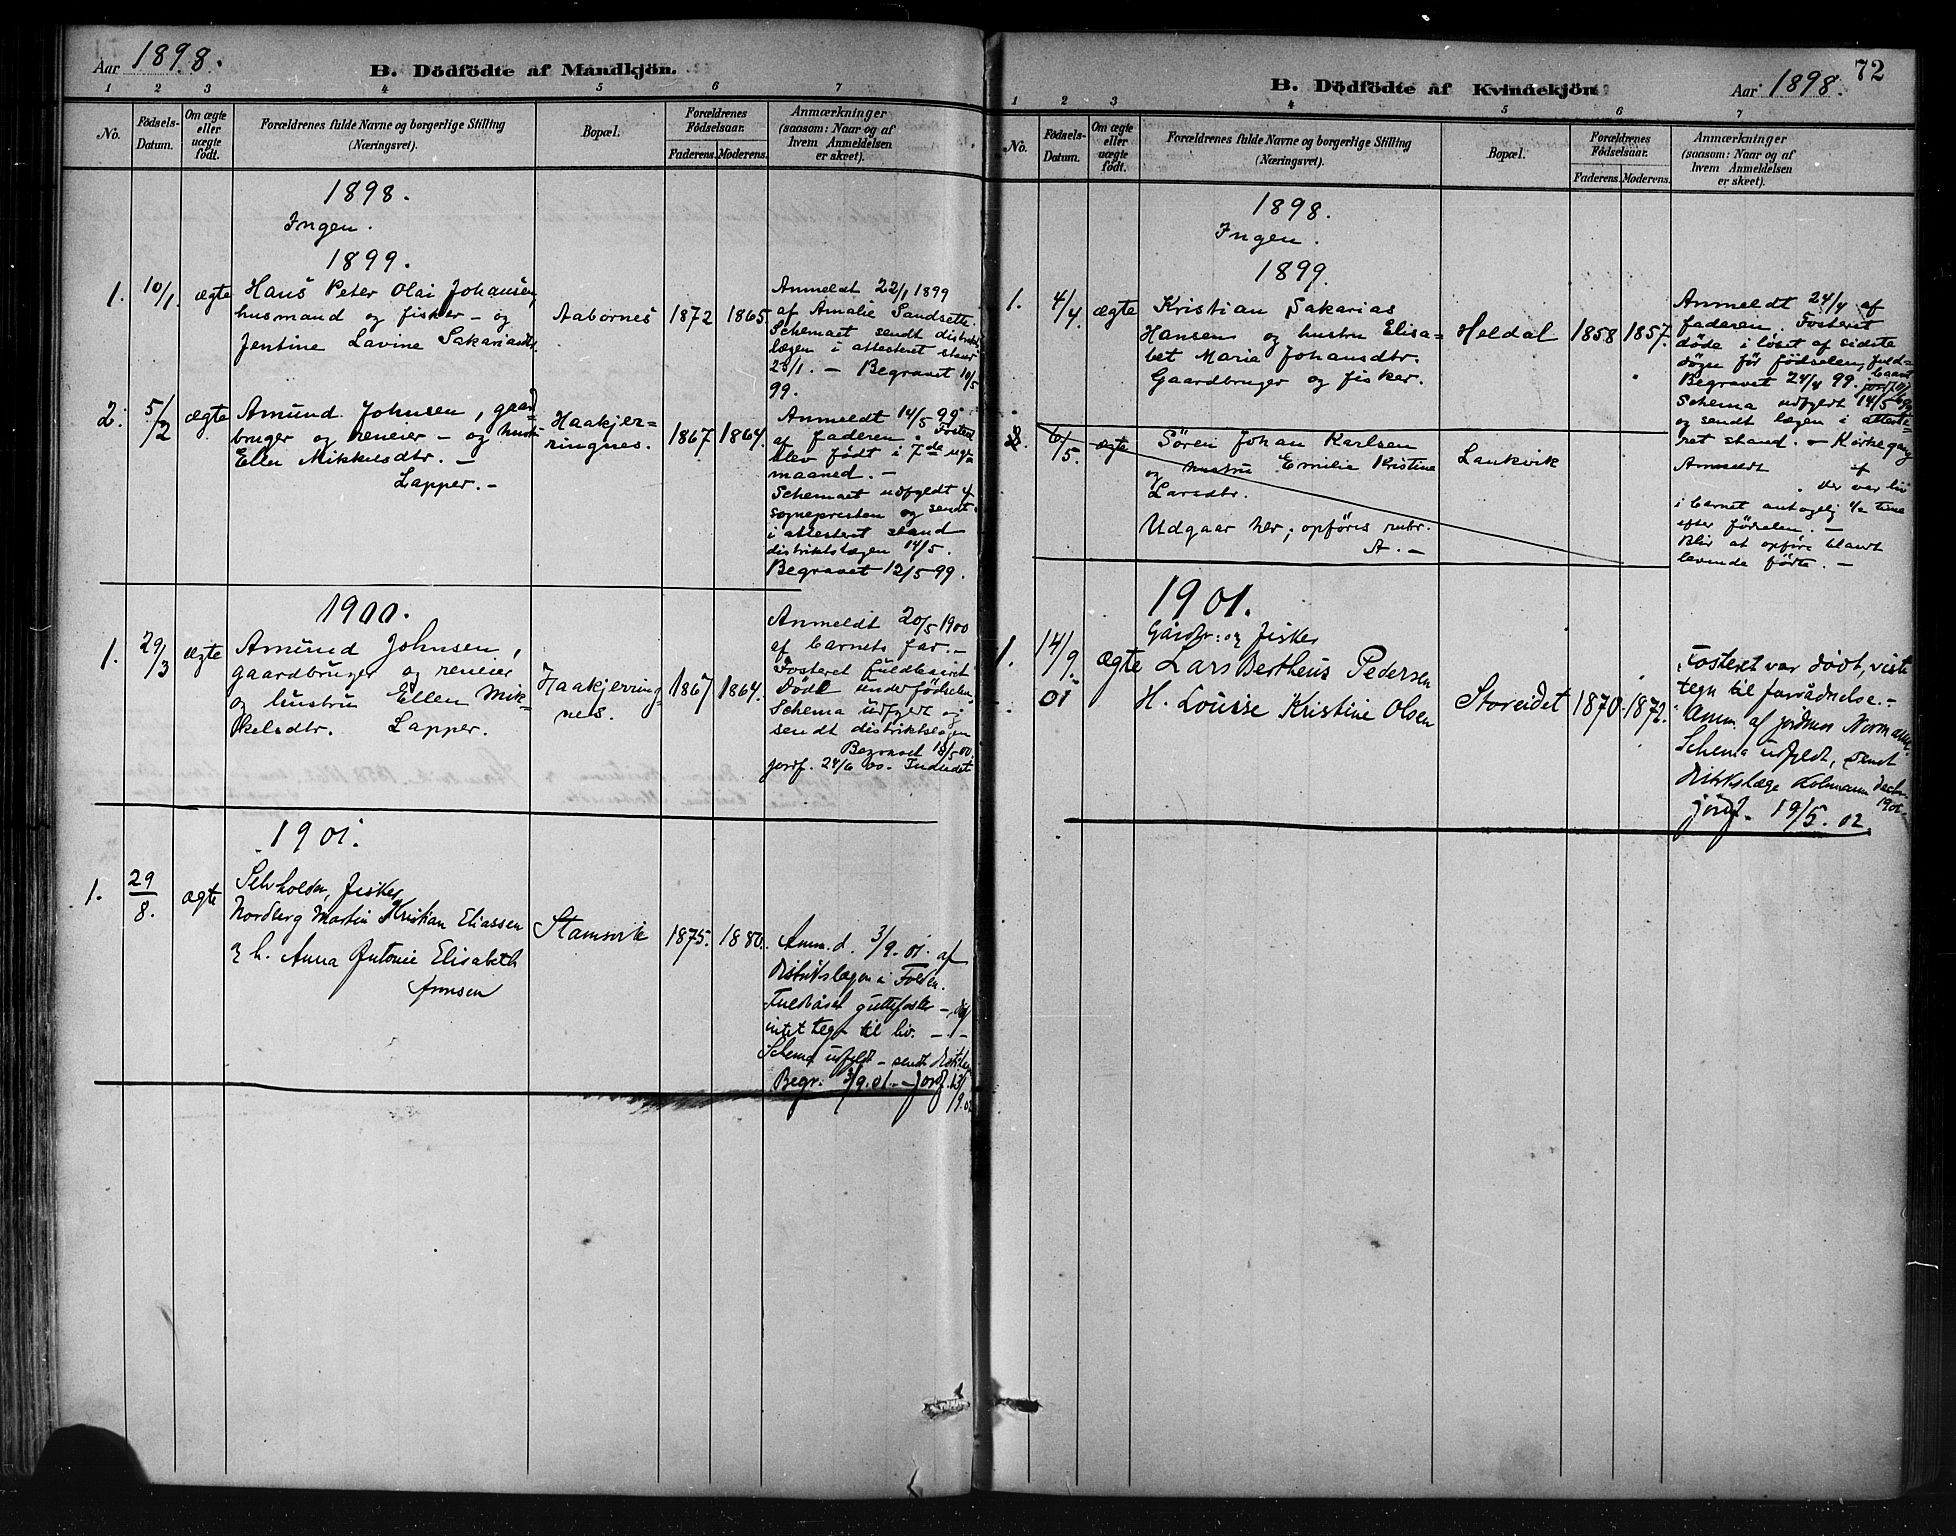 Aar 1898.
B. Dödfödte af Mandkjön.
1 2 3 4 5 6 7
No.
Födsels-
Datum.
Om ægte
eller
uægte
födt.
Forældrenes fulde Navne og borgerlige Stilling
(Næringsvei).
Bopæl.
Forældrenes
Födselsaar.
Faderens. Moderens.
Anmærkninger
(saasom: Naar og af
hvem Anmeldelsen
er skeet).
1898.
Ingen.
1899.
1. 10/1. ægte
Hans Peter Olai Johansen,
husmand og fisker – og
Jentine Lavine Sakariasdtr.
Aabornes
1872 1865.
Anmeldt 22/1 1899
af Amalie Sandsette.
Schemaet sendt distrikts
lægen i attesteret stand
23/1. – Begravet 10/5
99.
2. 5/2 ægte
Amund Johnsen, gaard
bruger og reneier – og hustru
Ellen Mikkelsdtr. –
Lapper. –
Haakjer-
ringnes.
1867 1864.
Anmeldt 14/5 99
af faderen. Fosteret
blev født i 7de
maaned. –
Schemaet udfyldt af
sognepresten og sendt
i attesteret stand
distriktslægen 14/5.
Begravet 12/5 99.
1900.
1. 29/3 ægte
Amund Johnsen,
gaardbruger og reneier
og hustru Ellen Mik-
kelsdtr. Lapper.
Haakjerring-
nes.
1867 1864.
Anmeldt 20/5 1900
af barnets far. –
Fosteret fuldbaaret
Døde under fødselen.
Schema udfyldt og
sendt distriktslægen
Begravet 18/5 00.
jordf. 24/6 00. Indridet
1901.
1. 29/8. ægte
Selvholden, fisker
Nordberg Martin Kristian Eliassen
& h. Anna Antonie Elisabeth
Arnsen
Stamsvik
1875. 1880.
Anm. d. 3/9. 01. af
Distriktslægen i Folden.
Fuldbåret guttefoster –
intet tegn til liv. –
Schema udfyldt – sendt
Begr. 3/9.01. – Jordf. 13/
9.01
72
B. Dödfödte af Kvindekjön
Aar 1898.
1 2 3 4 5 6 7
No.
Födsels-
Datum.
Om ægte
eller
uægte
födt.
Forældrenes fulde Navne og borgerlige Stilling
(Næringsvei).
Bopæl.
Forældrenes
Födselsaar.
Faderens. Moderens.
Anmærkninger
(saasom: Naar og af
hvem Anmeldelsen
er skeet).
1898.
Ingen.
1899.
1. 4/4. ægte
Kristian Sakarias
Hansen og hustru Elisa-
bet Maria Johansdtr.
Gaardbruger og fisker.
Heldal
1858 1857.
Anmeldt 24/4 af
faderen. Fosteret
døde i løbet af sidste
døgn før fødselen, fuld-
baaret
Begravet 24/4 99.
Schema udfyldt 14/5 99
og sendt lægen i atteste-
ret stand. – Kirkegang
2. 6/5. ægte
Sören Johan Karlsen
og hustru Emilie Kristine
Larsdtr.
Udgaar her; opføris rubr.
A. –
Laukvik
Anmeldt af
der var liv
i barnet antagelig 1/2 time
efter fødselen. –
Blir at opføre blandt
levende fødte. –
1901.
1. 14/9. 01 ægte
Gårdbr: og fisker
Lars Bertheus Pedersen
H. Lousise Kristine Olsen
Storeidet
1870. 1872.
Fosteret var dødt, viste
tegn til forrådnelse. –
Anm. af jordmor Normann.
Schema udfyldt, sendt
Distriktslæge Kolmann
1901
jordf. 19/5. 02.